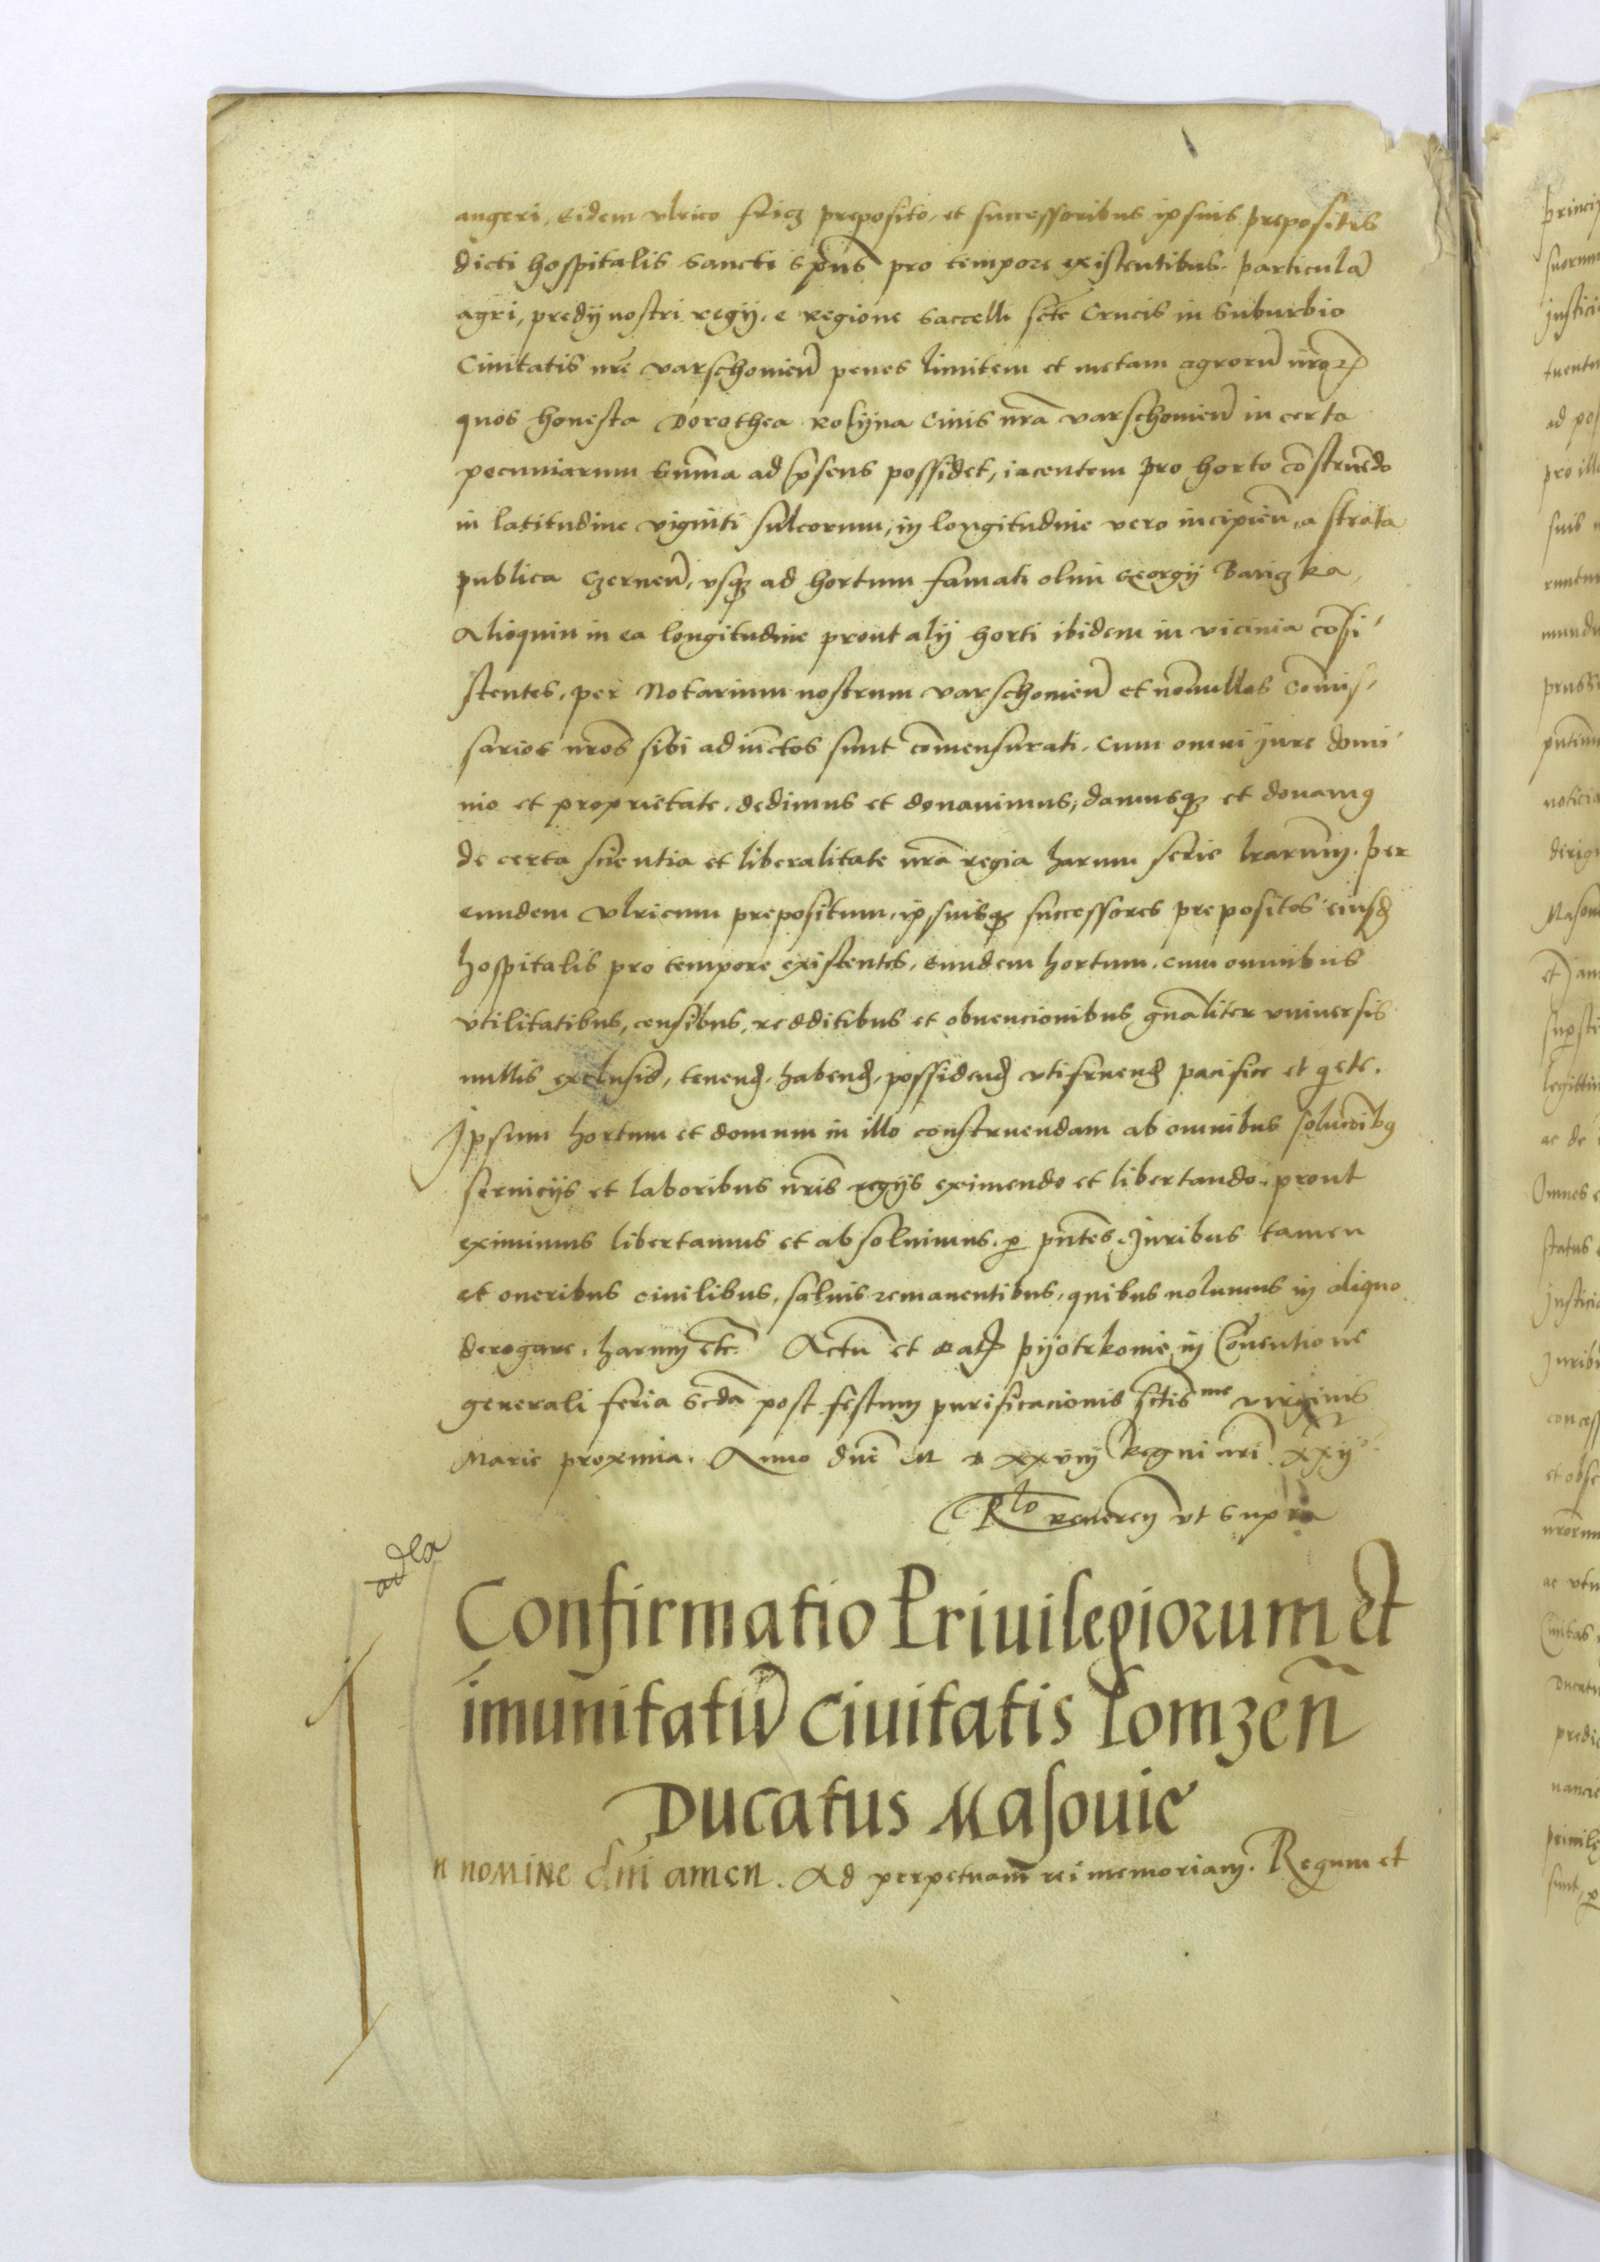 augeri, Eidem vlrico fricz preposito, et successoribus ipsius prepositis
dicti hospitalis sancti sp̄us pro tempore existentibus, particulā
agri, predij nostri regij, e regione saccelli scte Crucis in suburbio
Ciuitatis nr̄e varschouien̄ penes limitem et metam agrorū nrōꝝ
quos honesta Dorothea Rolijna Ciuis nr̄a varschouien̄ in certa
pecuniarum sum̄a ad p̄sens possidet, iacentem pro horto cōstruēdo
in latitudine viginti sulcorum, in longitudine vero incipien̄, a strata
publica Czernen̄, vsqꝫ ad hortum famati olim Georgij Bariczka,
Alioquin in ea longitudine prout alij horti ibidem in vicinia cōsi
stentes, per Notarium nostrum varschouien̄ et nōnullos Cōmis
sarios nrōs sibi adiūctos sunt cōmensurati. cum omni iure domi
nio et proprietate, dedimus et donauimus, damusqꝫ et donamꝯ
de certa scientia et liberalitate nr̄a regia harum serie lrarum̄. per
eundem vlricum prepositum, ipsiusqꝫ successores prepositos eiusd̄
hospitalis pro tempore existentes, eundem hortum, cum omnibus
vtilitatibus, censibus, redditibus et obuencionibus gnāliter vniuersis
nullis exclusis, tenend̄, habend̄, possidend̄ vtifruend̄ pacifice et qete.
Ipsum hortum et domum in illo construendam ab omnibus solucōibꝯ
seruicijs et laboribus nr̄is regijs eximendo et libertando, prout
eximimus libertamus et absoluimus. ꝑ pn̄tes. Iuribus tamen
et oneribus ciuilibus, saluis remanentibus, quibus nolumus in aliquo
derogare, harum etc̄. Actū et dat̄ pijotrkouie in Cōuentione
generali feria scd̄a post festum purificacionis sctis̄me virginis
Marie proxima. Anno dn̄i M D XXVIIJ Regni nr̄i XXIJ
Rlo reueren̄ vt supra
Confirmatio Priuilegiorum et
imunitatū ciuitatis Lomzen̄
Ducatus Masouie
In nomine dn̄i amen. Ad perpetuam̄ rei memoriam. Regum et